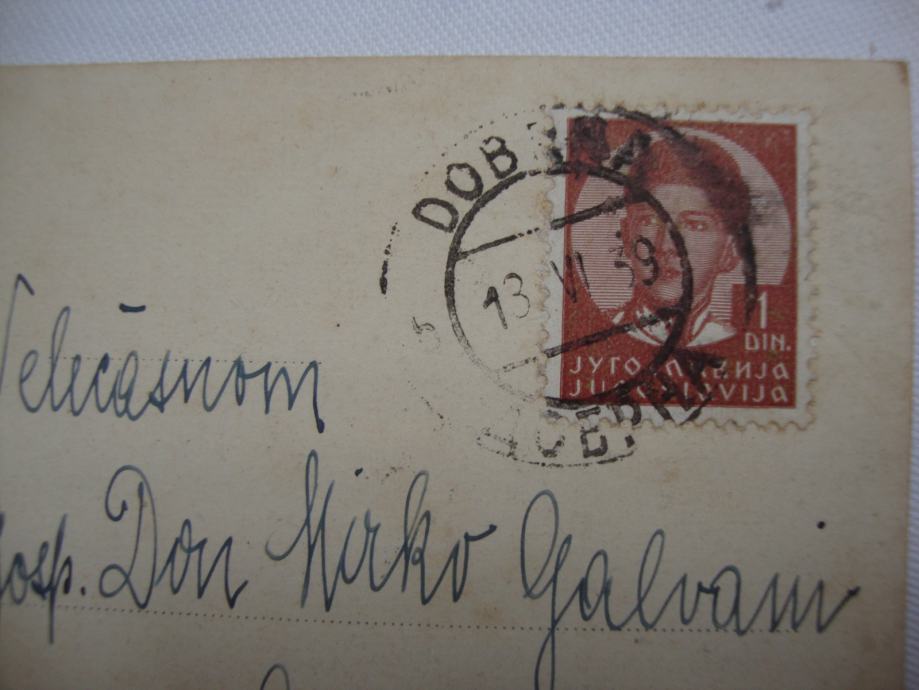 DOBRNA
13 VI 39
ДОБРНА
1
DIN.
ЈУГОСЛАВИЈА
JUGOSLAVIJA
Velečasnom
Gosp. Don Mirko Galvani